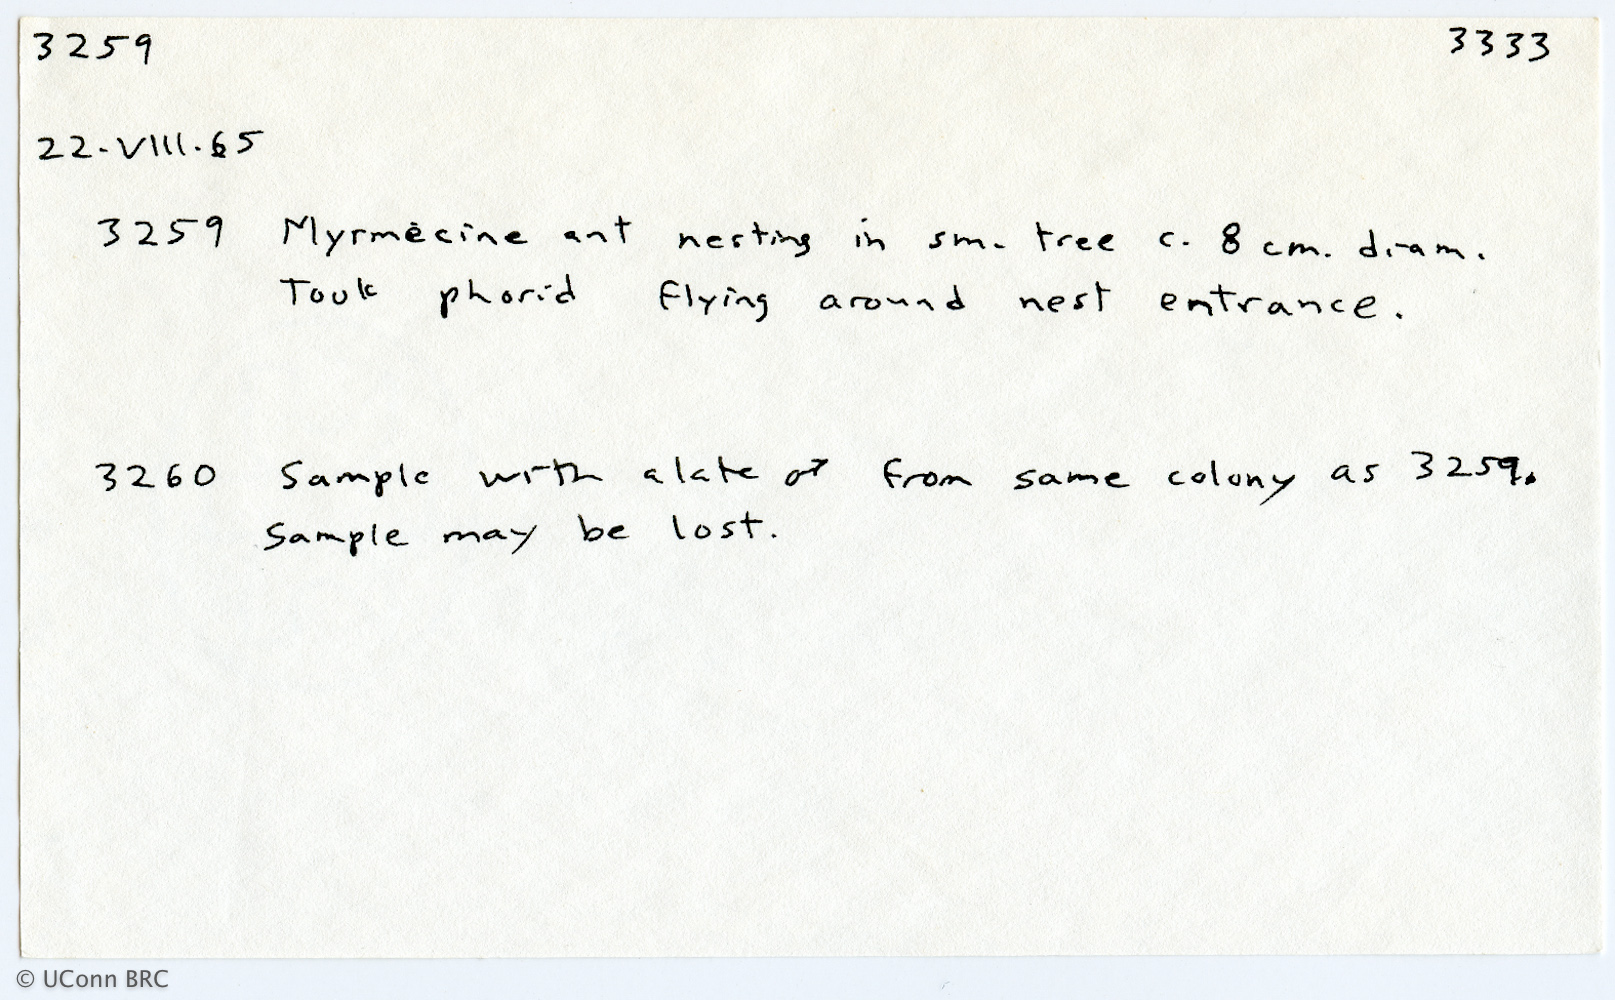 3259 3333
22.VIII.65
3259 Myrmecine ant nesting in sm. tree c. 8 cm. diam.
Took phorid flying around nest entrance.
3260 Sample with alate ♂ from same colony as 3259.
Sample may be lost.
© UConn BRC